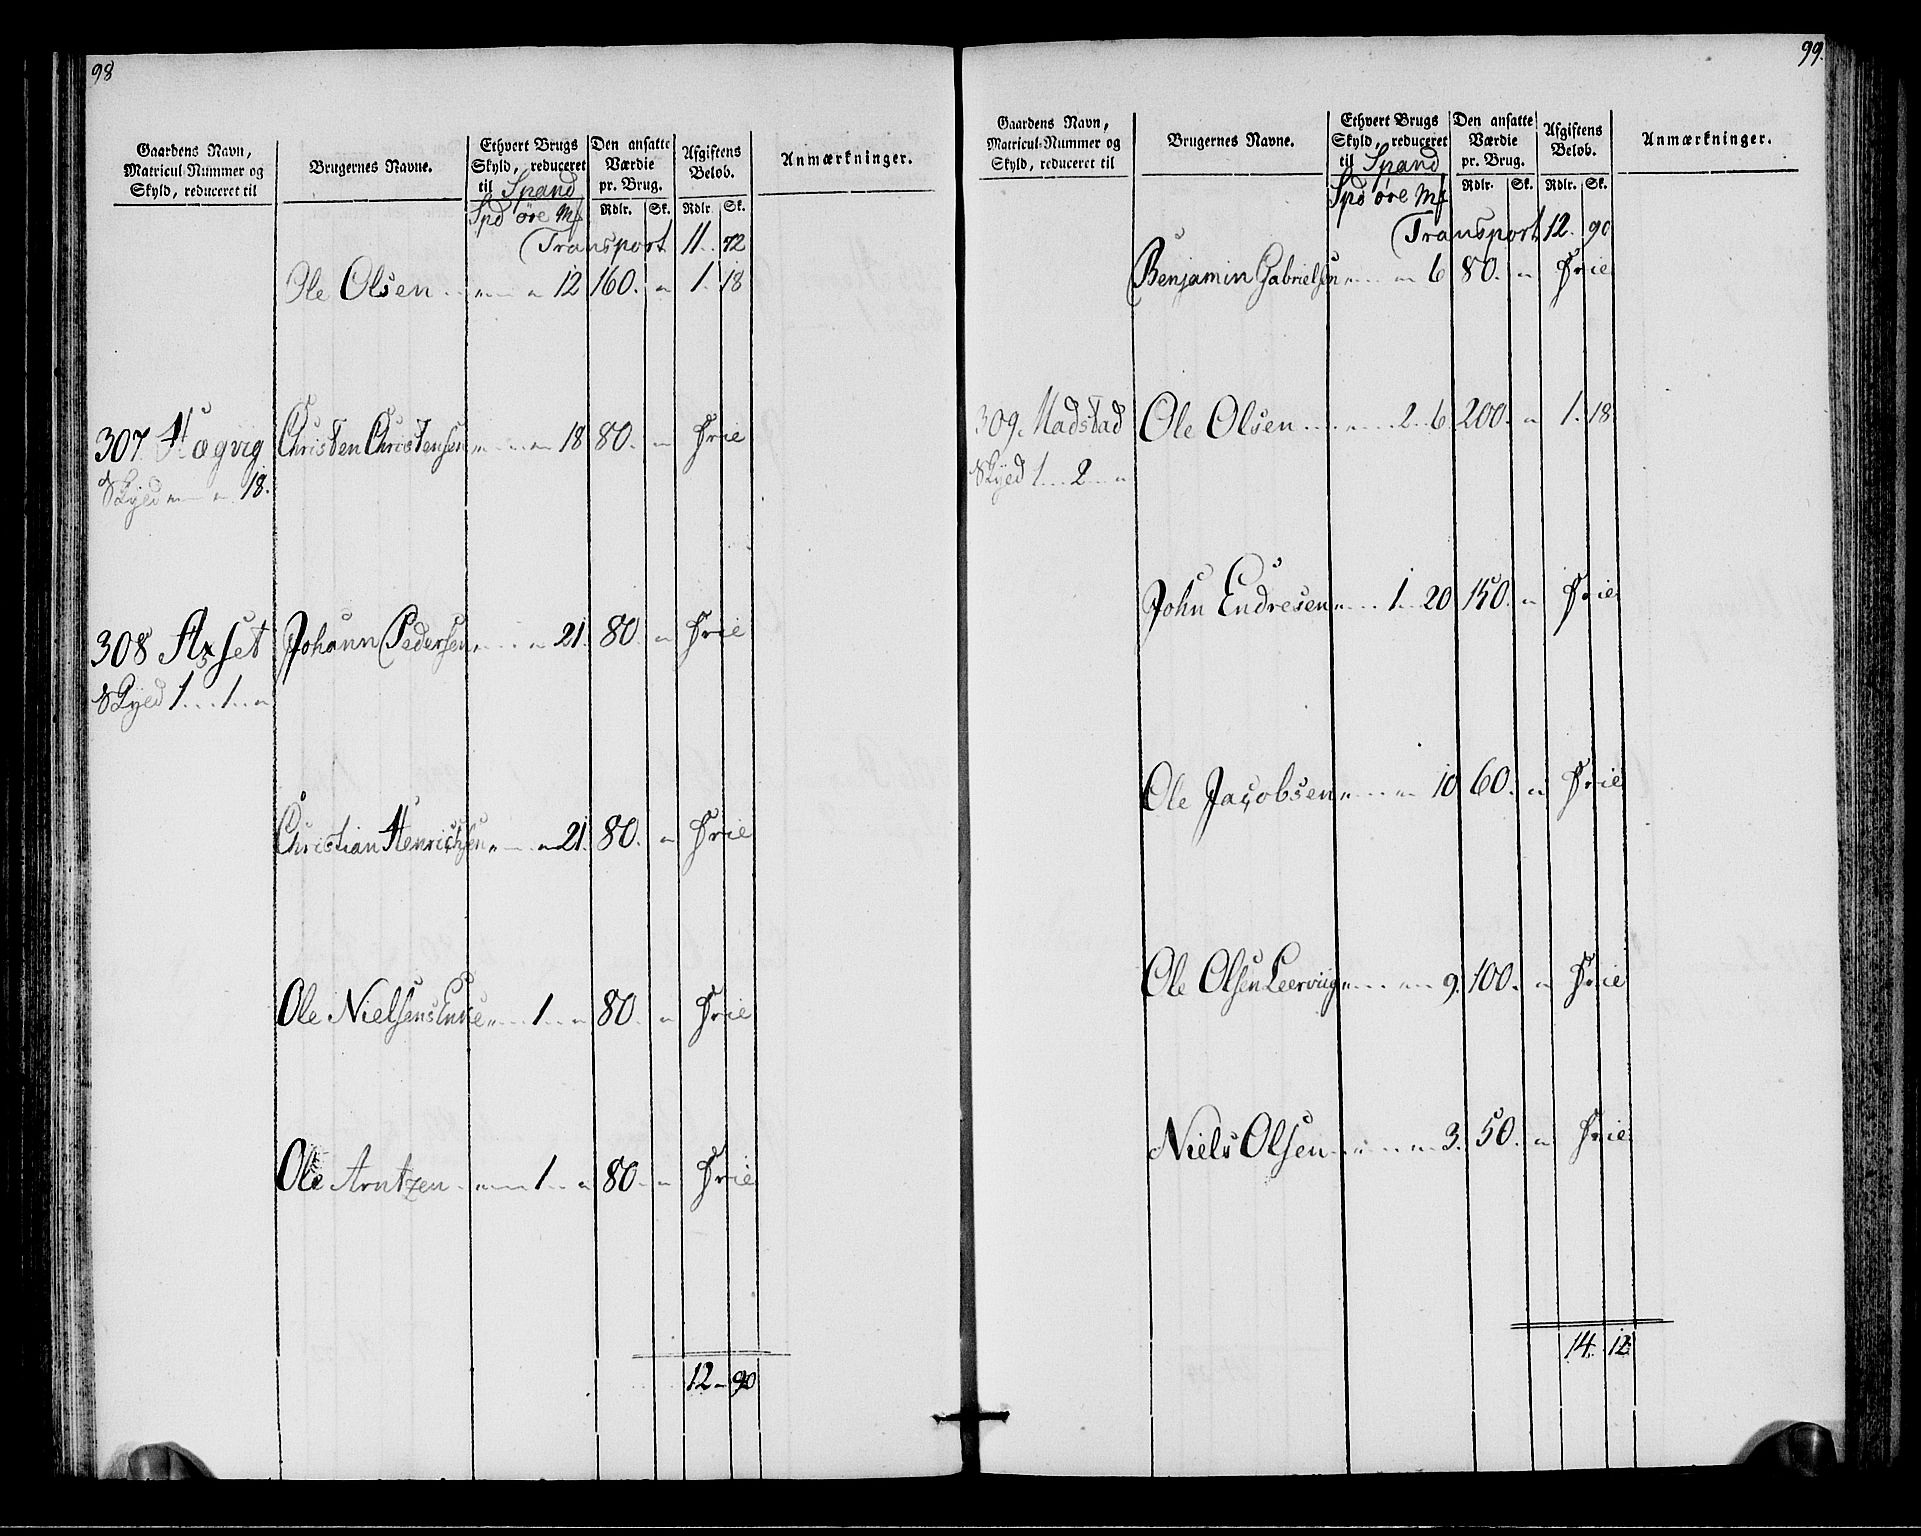 98
Gaardens Navn, Matricul-Nummer og Skyld, reduceret til | Brugernes Navne. | Ethvert Brugs Skyld, reduceret til Spand Spd öre Mk | Den ansatte Værdie pr. Brug. Rdlr. Sk. | Afgiftens Beløb. Rdlr. Sk. | Anmærkninger.
Transport 11 .. 72
Ole Olsen .. „ .. „ 12 160. „ 1. 18
307. Hægvig Christen Christensen „ .. „ 18 80. „ frie
Skyld „ .. „ 18.
308 Asset Johann Pedersen „ .. „ 21. 80. „ frie
Skyld 1 .. 1 .. „
Christian Henrichsen „ .. „ 21. 80. „ frie
Ole Nielsens Enke „ .. 1 .. „ 80. „ frie
Ole Arntzen „ .. 1 .. „ 80. „ frie
12 „ 90
99.
Gaardens Navn, Matricul-Nummer og Skyld, reduceret til | Brugernes Navne. | Ethvert Brugs Skyld, reduceret til Spand Spd öre Mk | Den ansatte Værdie pr. Brug. Rdlr. Sk. | Afgiftens Beløb. Rdlr. Sk. | Anmærkninger.
Transport 12. 90
Benjamin Gabrielsen „ .. „ 6 80. „ frie
309. Madstad Ole Olsen .. „ .. 2 .. 6 200. „ 1. 18
Skyld 1 .. 2 .. „
John Endresen „ .. 1 .. 20 150. „ frie
Ole Jacobsen „ .. „ 10 60. „ frie
Ole Olsen Leervig „ .. „ 9. 100. „ frie
Niels Olsen „ .. „ 3. 50. „ frie
14. 12